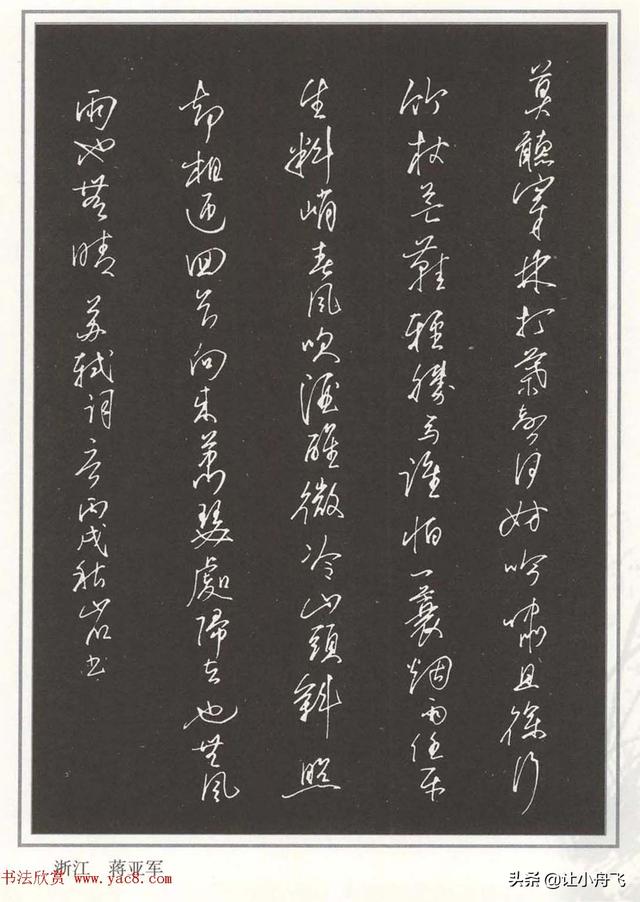 莫聽穿林打葉聲何妨吟嘯且徐行
竹杖芒鞋輕勝馬誰怕一蓑烟雨任平
生料峭春风吹酒醒微冷山頭斜照
却相迎回首向来蕭瑟處歸去也無风
雨也無晴 苏軾词 丙戌秋岩书
浙江 蒋亚军
书法欣赏 www.yac8.com
头条 @让小舟飞